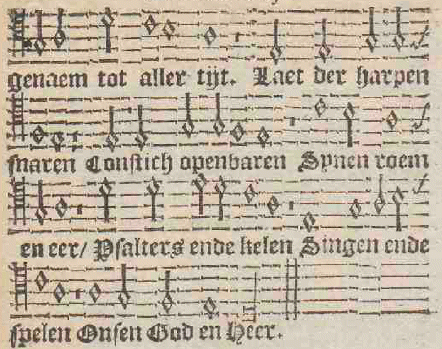 genaem tot aller tijt. Laet der harpen
snaren Constich openbaren Synen roem
en eer/ Psalters ende kelen Singen ende
spelen Onsen God en Heer.